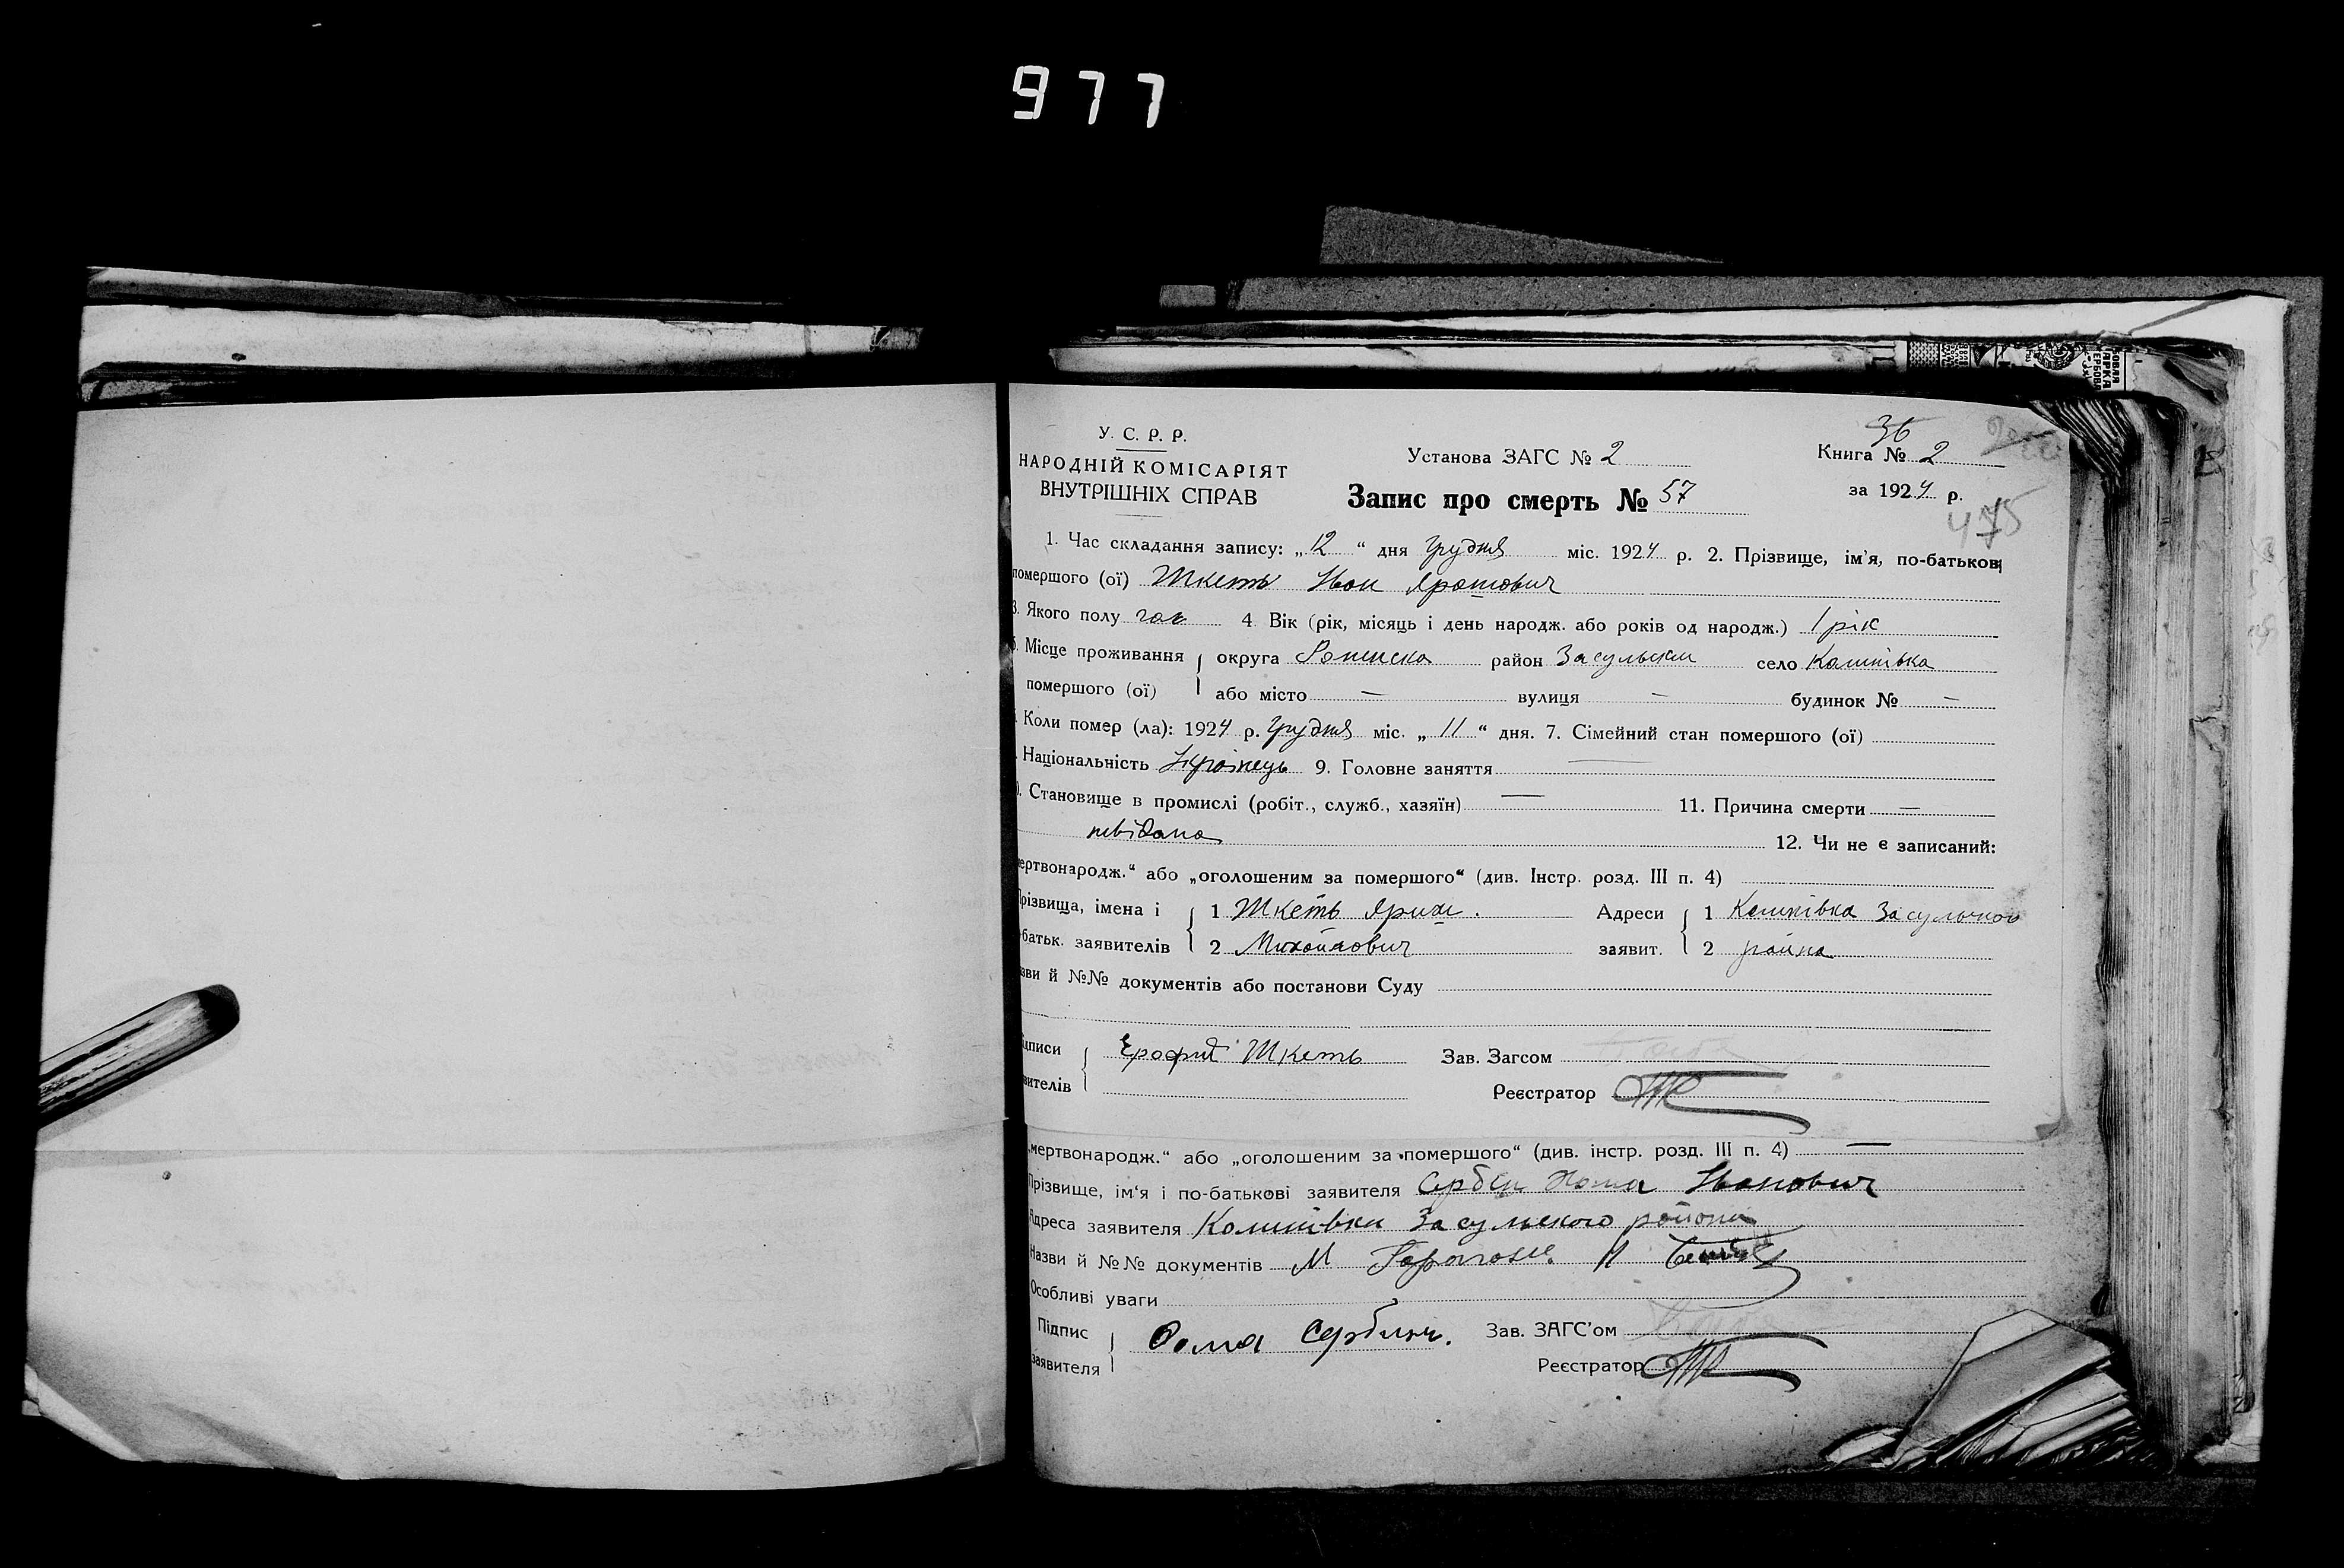 977
36
У. С. Р. Р.
НАРОДНІЙ КОМІСАРІЯТ
ВНУТРІШНІХ СПРАВ
Установа ЗАГС № 2
Книга № 2
Запис про смерть № 57
за 1924 р.
475
1. Час складання запису: „12“ дня Грудня міс. 1924 р. 2. Прізвище, ім'я, по-батькові
померлого (ої) Шкеть Іван
3. Якого полу чол 4. Вік (рік, місяць і день народж. або років од народж.) 1 рік
5. Місце проживання округа Роменска район Засульски село Калинівка
помершого (ої) або місто — вулиця — будинок № —
Коли помер (ла): 1924 р. Грудня міс. „11“ дня. 7. Сімейний стан помершого (ої)
Національність Українець 9. Головне заняття —
Становище в промислі (робіт., служб., хазяїн) — 11. Причина смерти —
невідана 12. Чи не є записаний:
мертвонародж.“ або „оголошеним за помершого“ (див. Інстр. розд. III п. 4)
Прізвища, імена і 1 Шкеть Адреси 1 Калинівка Засульского
батьк. заявителів 2 Михайлович заявит. 2 району
зви й №№ документів або постанови Суду
дписи Єрофій Шкеть Зав. Загсом
вителів Реєстратор
„мертвонародж.“ або „оголошеним за помершого“ (див. інстр. розд. III п. 4) —
Прізвище, ім‘я і по-батькові заявителя Сербин Хома Іванович
Адреса заявителя Калинівка Засульского району
Назви й №№ документів
Особливі уваги
Підпис Фома Сербин. Зав. ЗАГС'ом
заявителя Реєстратор